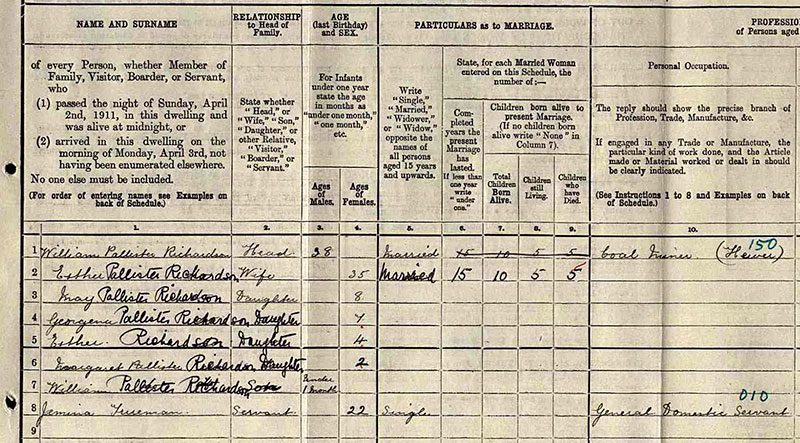 NAME AND SURNAME
of every Person, whether Member of
Family, Visitor, Boarder, or Servant,
who
(1) passed the night of Sunday, April
2nd, 1911, in this dwelling and
was alive at midnight, or
(2) arrived in this dwelling on the
morning of Monday, April 3rd, not
having been enumerated elsewhere.
No one else must be included.
(For order of entering names see Examples on
back of Schedule.)
RELATIONSHIP
to Head of
Family.
State whether
"Head," or
"Wife," "Son,"
"Daughter," or
other Relative,
"Visitor,"
"Boarder," or
"Servant."
AGE
(last Birthday)
and SEX.
For Infants
under one year
state the age
in months as
"under one month,"
"one month,"
etc.
Ages
of
Males.
Ages
of
Females.
PARTICULARS as to MARRIAGE.
Write
"Single,"
"Married,"
"Widower,"
or "Widow,"
opposite the
names of
all persons
aged 15 years
and upwards.
State, for each Married Woman
entered on this Schedule, the
number of:—
Com-
pleted
years the
present
Marriage
has
lasted.
If less than
one year
write
"under
one."
Children born alive to
present Marriage.
(If no children born
alive write "None" in
Column 7).
Total
Children
Born
Alive.
Children
still
Living.
Children
who
have
Died.
PROFESSIO
of Persons aged
Personal Occupation.
The reply should show the precise branch of
Profession, Trade, Manufacture, &c.
If engaged in any Trade or Manufacture, the
particular kind of work done, and the Article
made or Material worked or dealt in should
be clearly indicated.
(See Instructions 1 to 8 and Examples on back
of Schedule.)
1. 2. 3. 4. 5. 6. 7. 8. 9. 10.
150
1 William Pallister Richardson Head 38 Married 15 10 5 5 Coal Miner (Hewer)
2 Esther Pallister Richardson Wife 35 Married 15 10 5 5
3 May Pallister Richardson Daughter 8
4 Georgena Pallister Richardson Daughter 7
5 Esther Richardson Daughter 4
6 Margaret Pallister Richardson Daughter 2
7 William Pallister Richardson Son Under 1 month
010
8 Jemima Fuseman Servant 22 Single General Domestic Servant
9